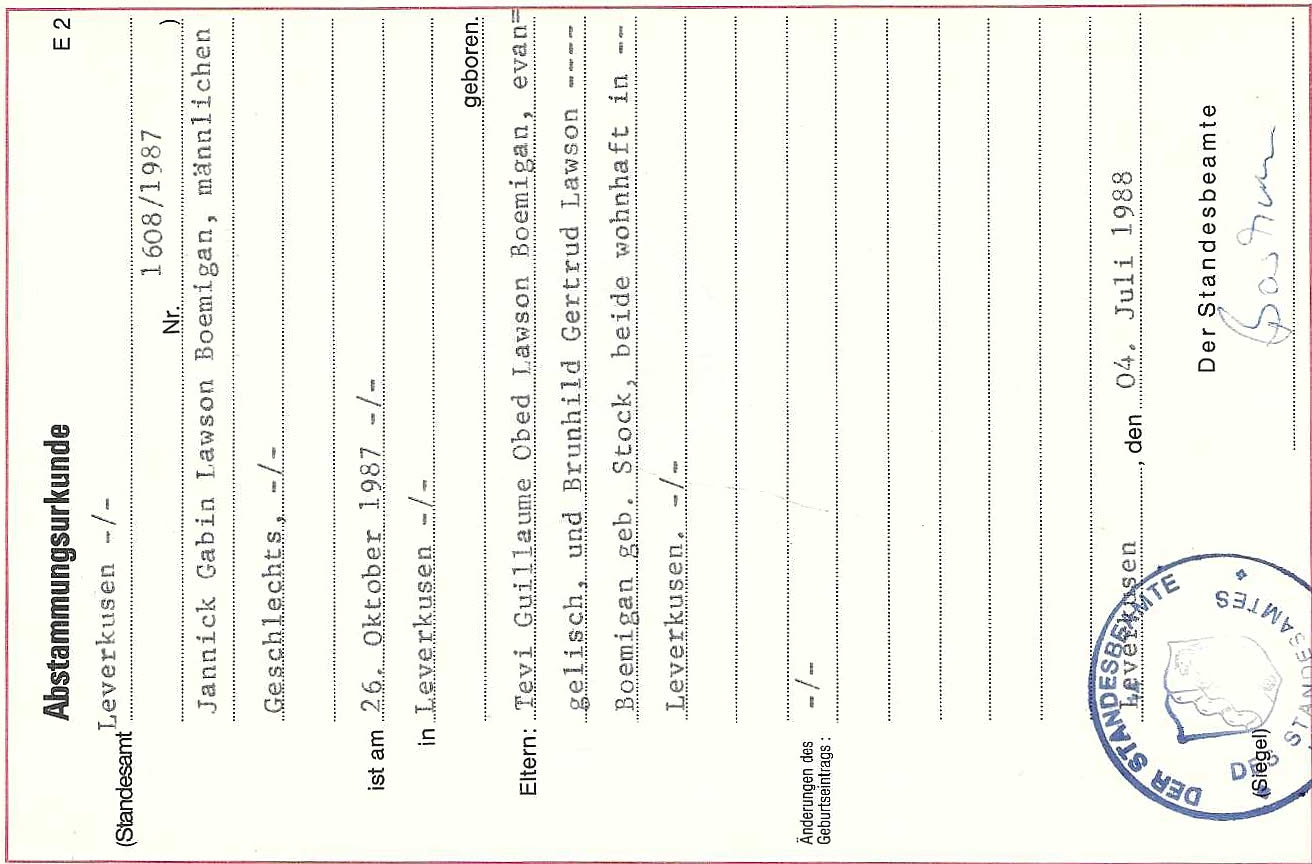 Abstammungsurkunde E 2
(Standesamt Leverkusen -/-
Nr. 1608/1987 )
Jannick Gabin Lawson Boemigan, männlichen
Geschlechts, -/-
ist am 26. Oktober 1987 -/-
in Leverkusen -/-
geboren.
Eltern: Tevi Guillaume Obed Lawson Boemigan, evan=
gelisch, und Brunhild Gertrud Lawson ----
Boemigan geb. Stock, beide wohnhaft in --
Leverkusen. -/-
Änderungen des
Geburtseintrags: -/-
Leverkusen, den 04. Juli 1988
Der Standesbeamte
(Siegel)
DER STANDESBEAMTE
DES STANDESAMTES